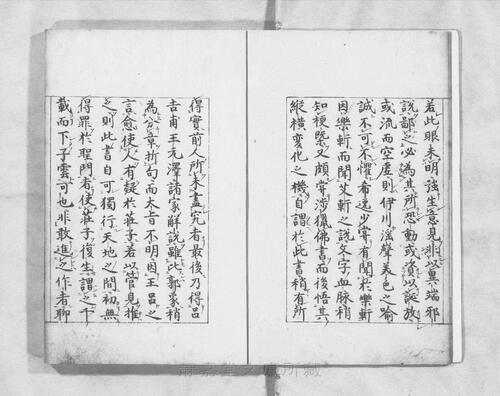 若此眼未明強生意見非以異端邪
說鄙之必為其所恐動或資以誕放
或流而空虛則伊川淫聲美色之喻
誠不可不懼希逸少嘗有聞於樂軒
因樂軒而聞艾軒之說文字血脉稍
知梗槩又頗嘗涉獵佛書而後悟其
縱橫変化之機自謂於此書稍有所
得實前人所未盡究者最後乃得呂
吉甫王元澤諸家解說雖比郭象稍
為分章析句而大旨不明因王呂之
言愈使人有疑於莊子若以管見推
之則此書自可獨行天地之間初無
得罪於聖門者使莊子復生謂之千
載而下子雲可也非敢進之作者聊